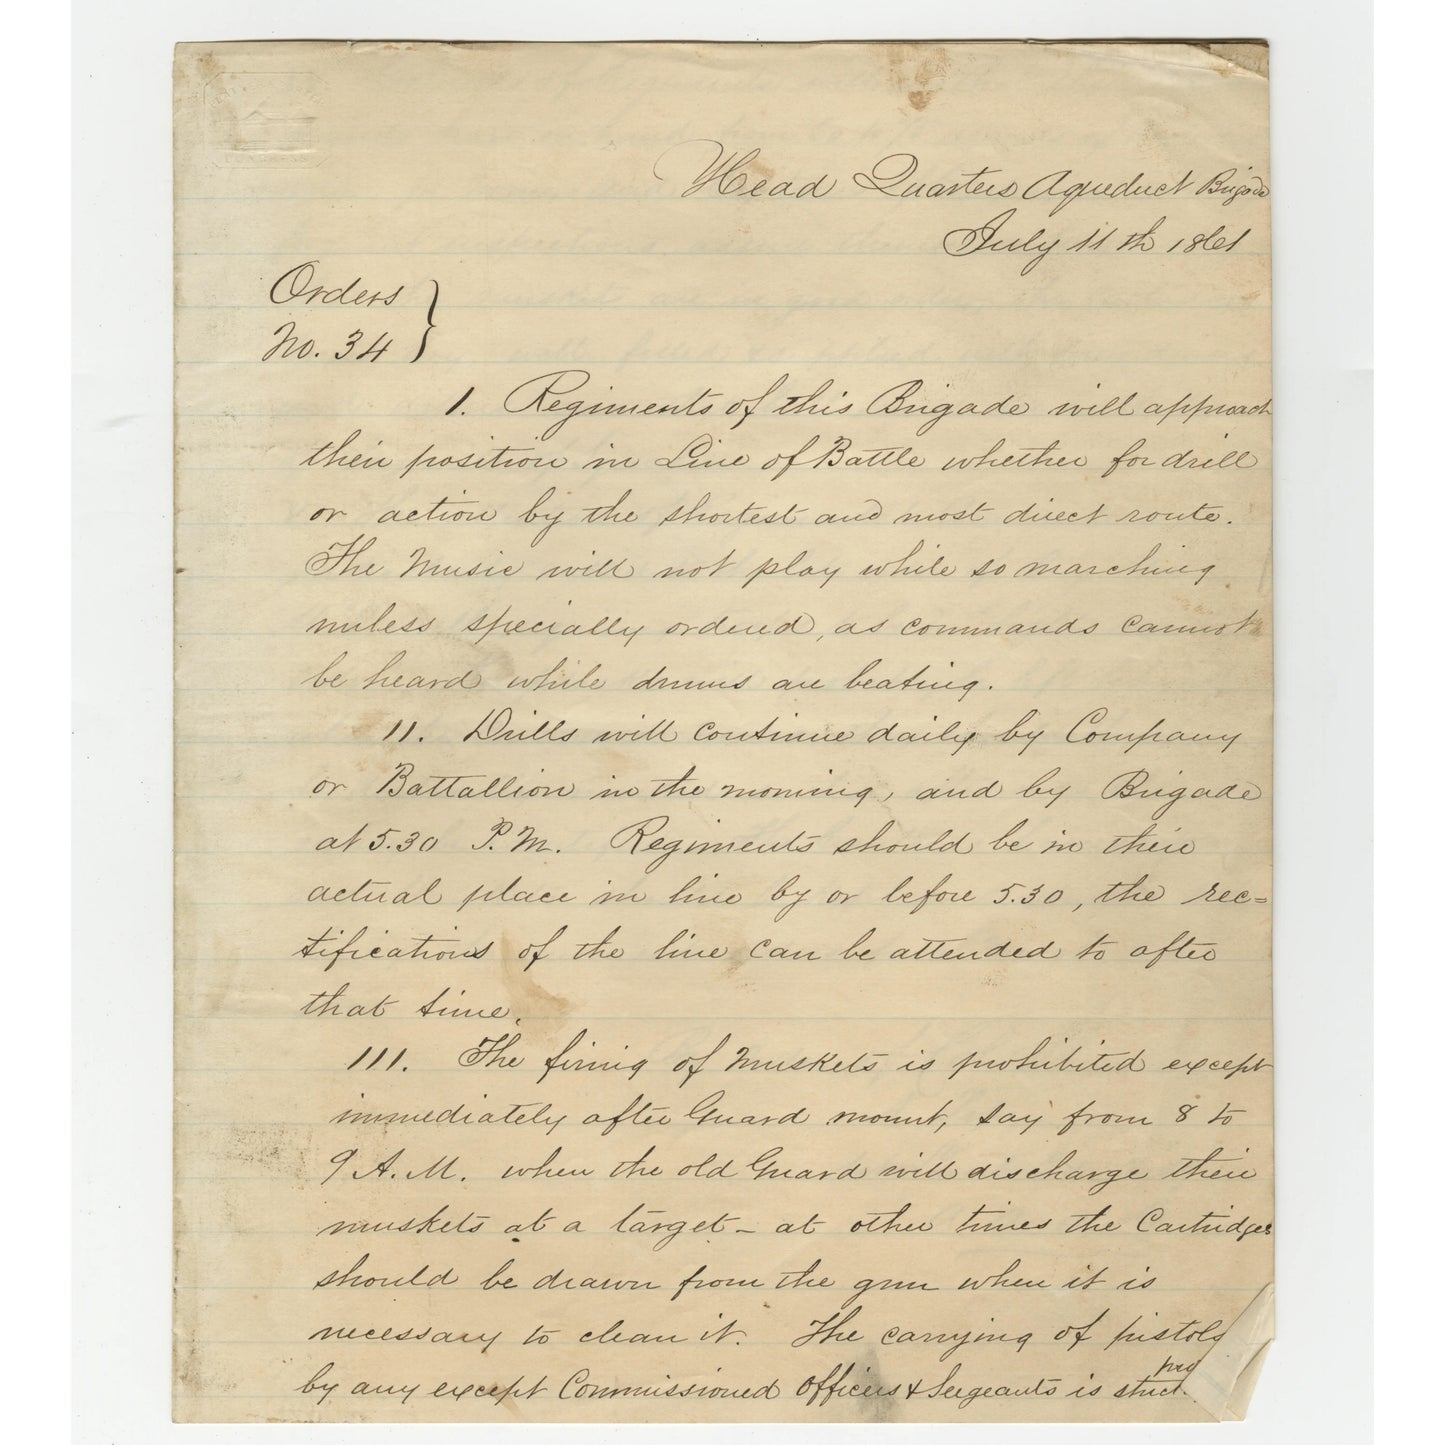 Head Quarters Aqueduct Brigade
July 11th 1861
Orders
No. 34
1. Regiments of this Brigade will approach
their position in Line of Battle whether for drill
or action by the shortest and most direct route.
The Music will not play while so marching
unless specially ordered, as commands cannot
be heard while drums are beating.
11. Drills will continue daily by Company
or Battallion in the morning, and by Brigade
at 5.30 P.M. Regiments should be in their
actual place in line by or before 5.30, the rec=
tifications of the line can be attended to after
that time.
111. The firing of Muskets is prohibited except
immediately after Guard mount, say from 8 to
9 A.M. when the old Guard will discharge their
muskets at a target – at other times the Cartridges
should be drawn from the gun when it is
necessary to clean it. The carrying of pistols
by any except Commissioned Officers & Sergeants is